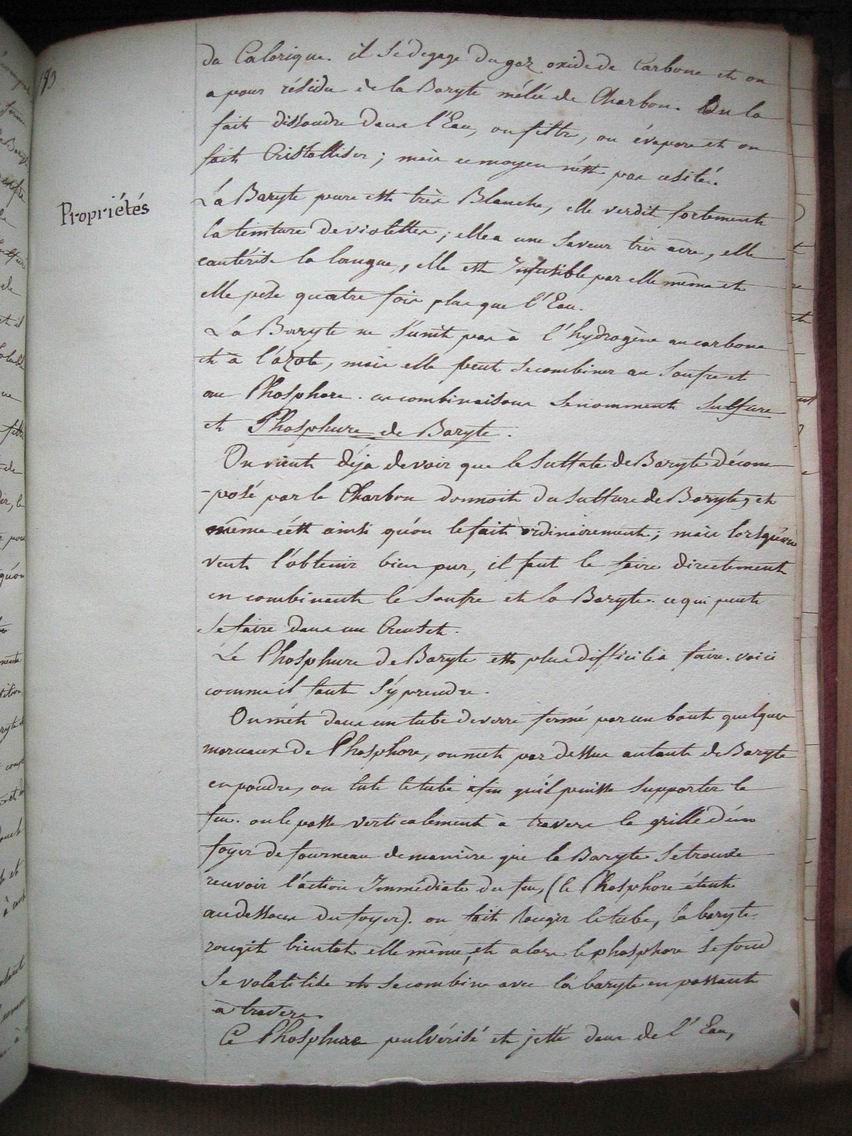 du Calorique. il se dégage du gaz oxide de Carbone et on
a pour résidu de la Baryte mêlée de Charbon. On la
fait dissoudre dans l'Eau, on filtre, on évapore et on
fait Cristalliser; mais ce moyen n'est pas usité.
Propriétés
La Baryte pure est très Blanche, elle verdit fortement
la teinture de violettes; elle a une saveur très acre, elle
cautérise la langue, elle est Infusible par elle même et
elle pèse quatre fois plus que l'Eau.
La Baryte ne s'unit pas à l'hydrogène au carbone
et à l'azote, mais elle peut se combiner au Soufre et
au Phosphore. ces combinaisons se nomment sulfure
et Phosphure de Baryte.
On vient déja de voir que le Sulfate de Baryte décom-
-posé par le Charbon donnoit du Sulfure de Baryte, et
même c'est ainsi qu'on le fait ordinairement; mais lorsqu'on
veut l'obtenir bien pur, il faut le faire directement
en combinant le Soufre et la Baryte. ce qui peut
se faire dans un Creuset.
Le Phosphure de Baryte est plus difficile à faire. voici
comme il faut s'y prendre.
On met dans un tube de verre fermé par un bout quelques
morceaux de Phosphore, on met par dessus autant de Baryte
en poudre, on lute le tube afin qu'il puisse supporter le
feu. on le passe verticalement à travers la grille d'un
foyer de fourneau de manière que la Baryte se trouve
recevoir l'action Immédiate du feu, (le Phosphore étant
au dessous du foyer). on fait Rougir le tube, la baryte
rougit bientot elle même, et alors le phosphore se fond
se volatilise et se combine avec la baryte en passant
à travers.
Ce Phosphure pulvérisé et jetté dans de l'Eau,